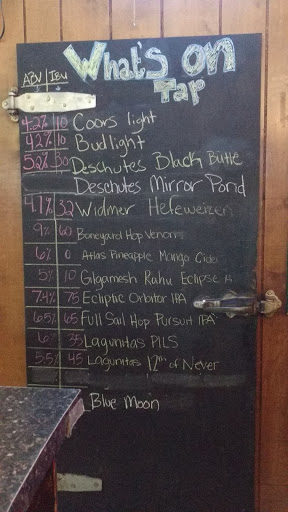 What's on
Tap
ABV IBU
4.2% 10 Coors light
4.2% 10 Bud light
5.2% 30 Deschutes Black Butte
Deschutes Mirror Pond
4.7% 32 Widmer Hefeweizen
9% 60 Boneyard Hop Venom
6% 0 Atlas Pineapple Mango Cider
5% 10 Gilgamesh Rahu Eclipse
7.4% 75 Ecliptic Orbiter IPA
6.5% 65 Full Sail Hop Pursuit IPA
6% 35 Lagunitas PILS
5.5% 45 Lagunitas 12th of Never
Blue Moon